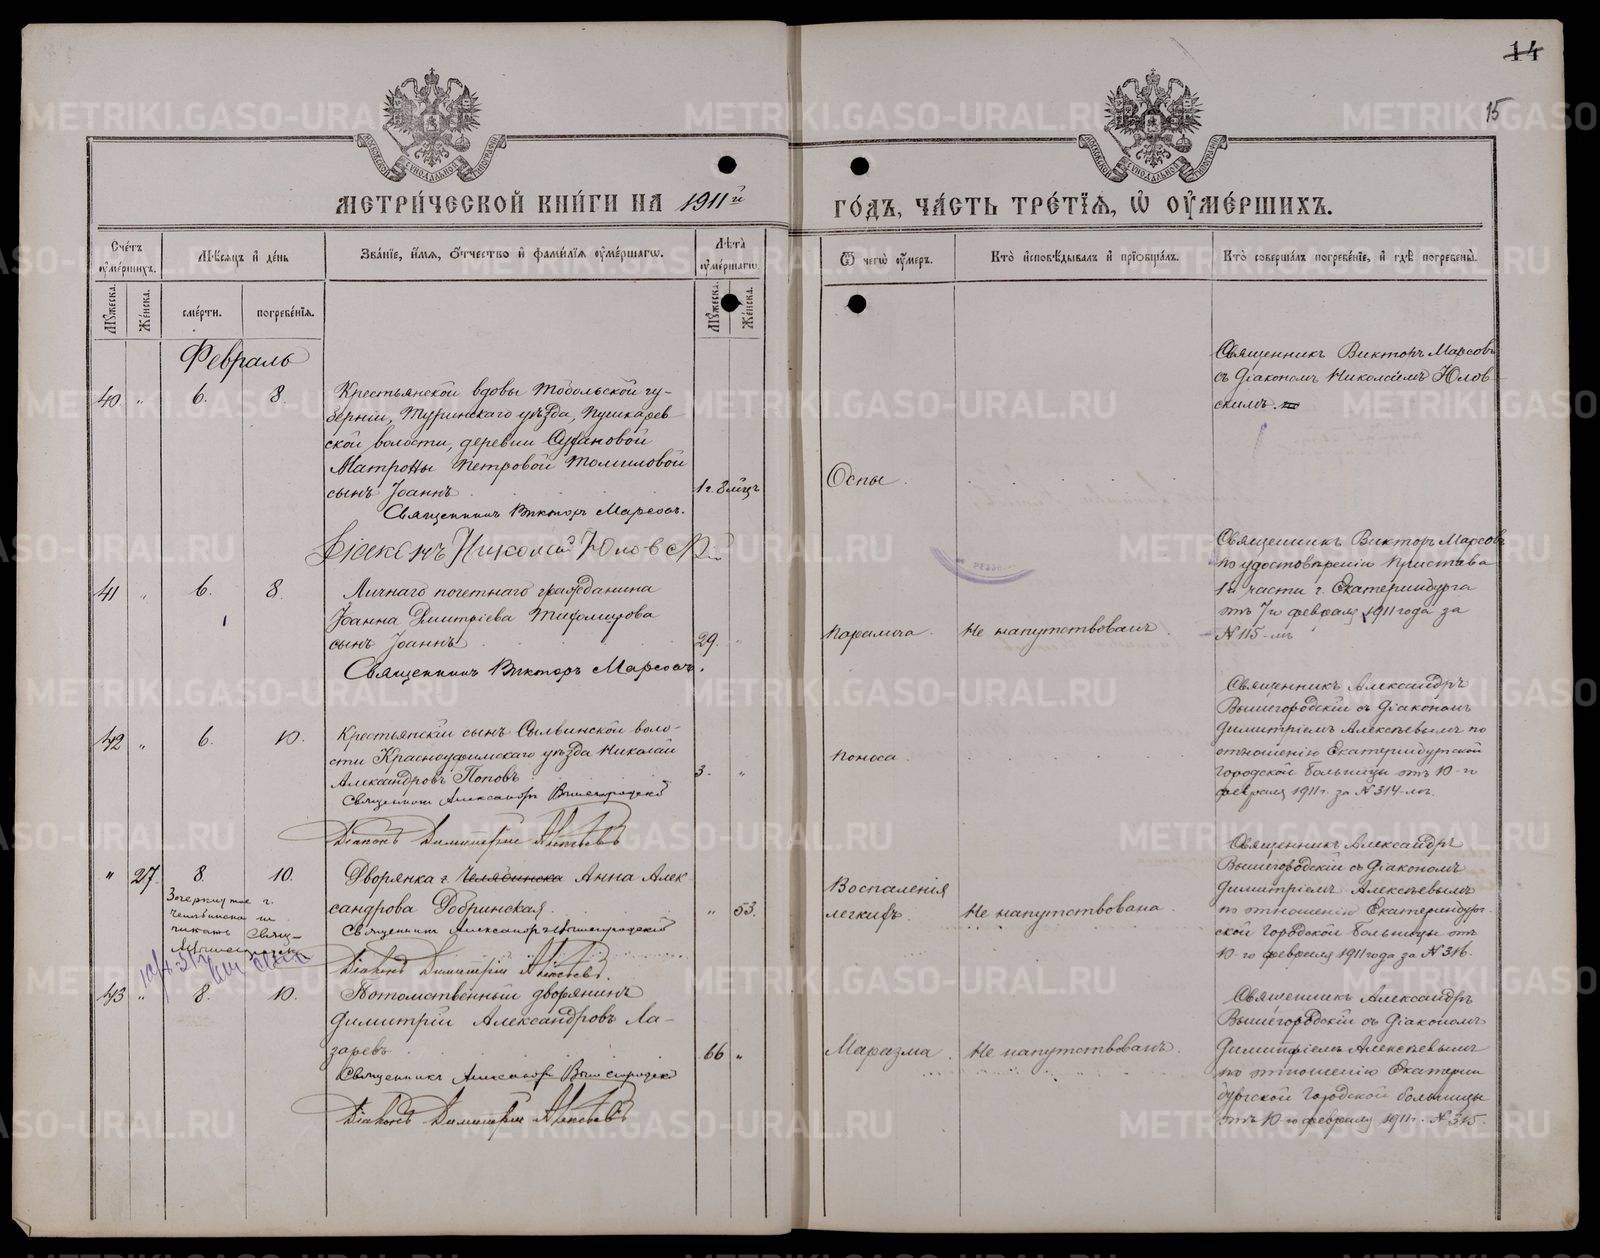 14
15
МЕТРИЧЕСКОЙ КНИГИ НА 1911й
ГОДЪ, ЧАСТЬ ТРЕТІЯ, Ѿ ОУМЕРШИХЪ.
Счетъ оумершихъ.
Мѣсяцъ и день
Званіе, имя, отчество и фамилія оумершагѡ.
Лѣта оумершагѡ
Ѿ чегѡ оумеръ.
Кто исповѣдывалъ и пріобщалъ.
Кто совершалъ погребеніе, и гдѣ погребены.
Мужеска.
Женска.
смерти.
погребенія.
Мужеска.
Женска.
Февраль
40. " 6. 8.
Крестьянской вдовы Тобольской гу-
берніи, Туринскаго уѣзда, Пушкарев
ской волости, деревни
Матроны Петровой Томиловой
сынъ Іоаннъ
1 г. 8 мцъ
Священникъ Викторъ Марсовъ.
Діаконъ Николай
Оспы.
Священникъ Викторъ Марсовъ
съ діакономъ Николаемъ Юлов
скимъ.
41 " 6. 8.
Личнаго почетнаго гражданина
Іоанна Дмитріева Тихомирова
сынъ Іоаннъ
29. "
Священникъ Викторъ Марсовъ.
Паралича.
Не напутствованъ
Священникъ Викторъ Марсовъ
по удостовѣренію Пристава
1й части г. Екатеринбурга
отъ 7го февраля 1911 года за
№ 115-мъ
42 " 6. 10.
Крестьянскій сынъ Сылвинской воло-
сти Красноуфимскаго уѣзда Николай
Александровъ Поповъ
3. "
Священникъ Александръ Вышегородскій
Діаконъ Димитрій Алексѣевъ
Поноса
Священникъ Александръ
Вышегородскій съ діакономъ
Димитріемъ Алексѣевымъ по
отношенію Екатеринбургской
Городской больницы отъ 10-го
февраля 1911 г. за № 314-мъ.
" 27. 8. 10.
Дворянка г. Челябинска Анна Алек
сандрова Добринская
" 53.
Священникъ Александръ Вышегородскій
Діаконъ Димитрій Алексѣевъ.
Зачеркнутое г.
Челябинска не
читать Свящ-
Воспаленія
легкихъ.
Не напутствована
Священникъ Александръ
Вышегородскій съ діакономъ
Димитріемъ Алексѣевымъ
по отношенію Екатеринбург
ской Городской больницы отъ
10-го февраля 1911 года за № 316.
43 " 8. 10.
Потомственный дворянинъ
Димитрій Александровъ Ла-
заревъ
66 "
Священникъ Александръ Вышегородскій
Діаконъ Димитрій Алексѣевъ
Маразма.
Не напутствованъ.
Священникъ Александръ
Вышегородскій съ діакономъ
Димитріемъ Алексѣевымъ
по отношенію Екатерин
бургской Городской больницы
отъ 10-го февраля 1911 г. № 315.
METRIKI.GASO-URAL.RU